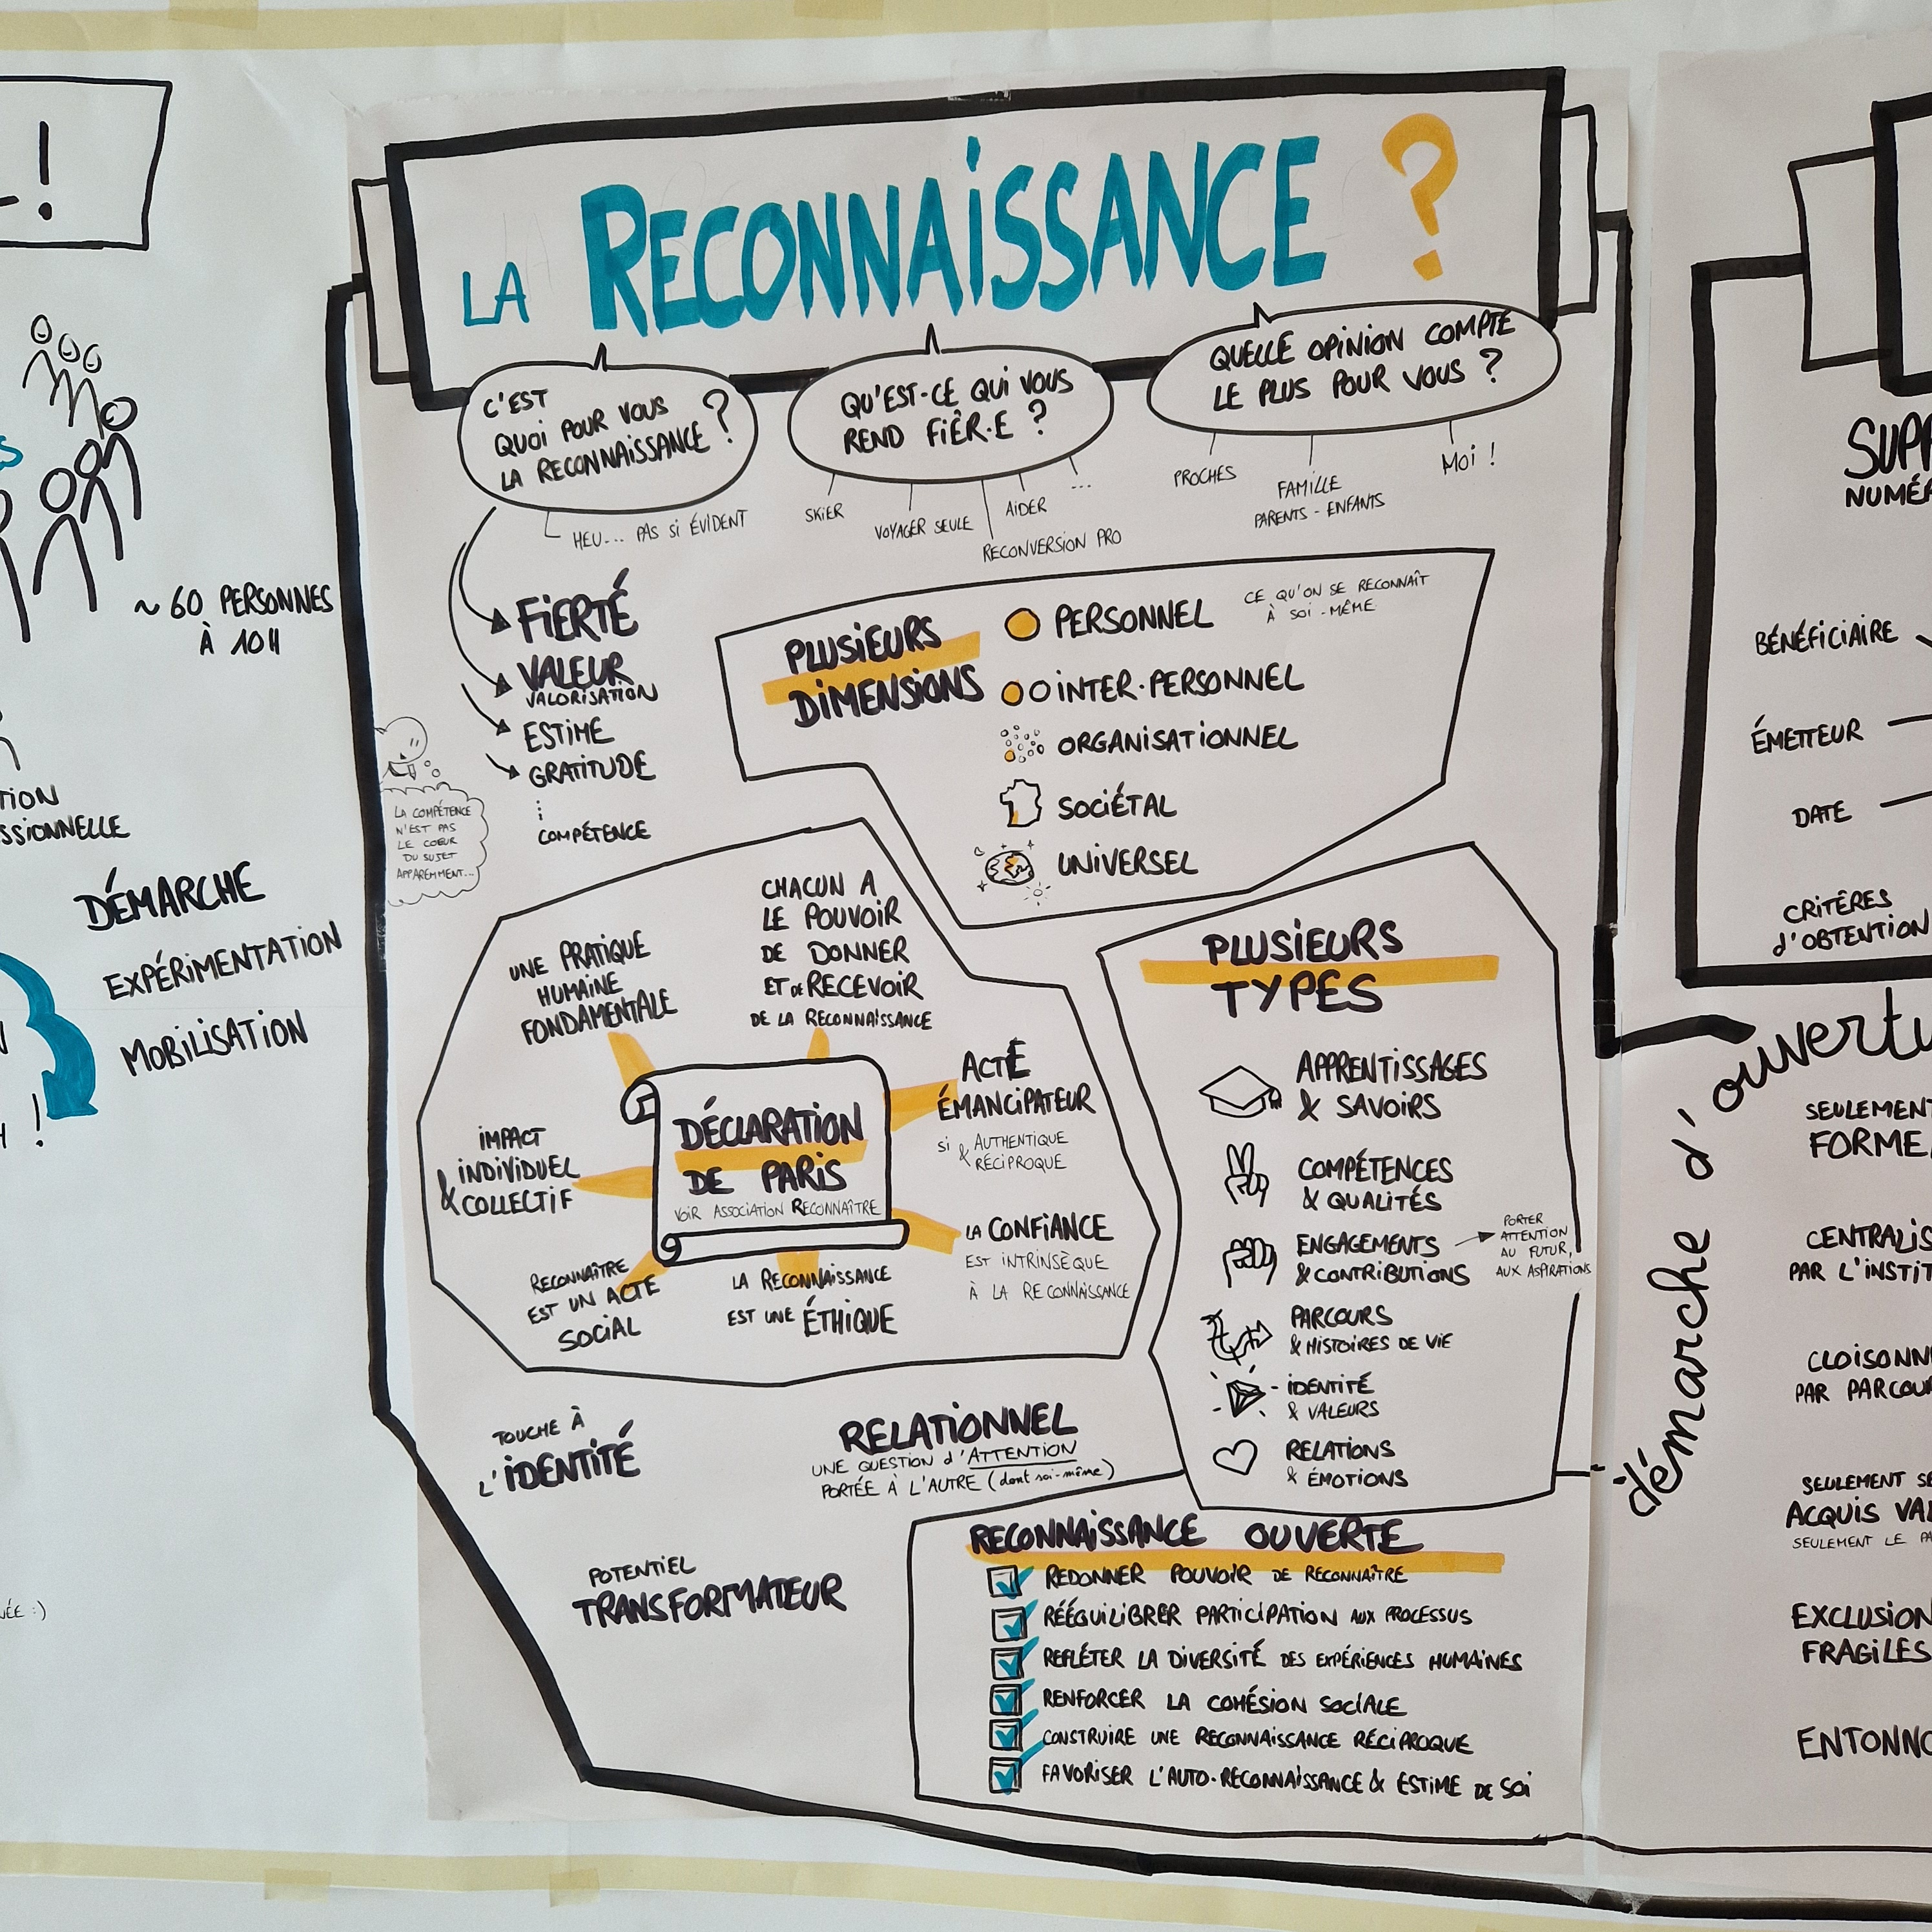 LA RECONNAISSANCE ?
C'EST
QUOI POUR VOUS
LA RECONNAISSANCE ?
HEU... PAS SI ÉVIDENT
QU'EST-CE QUI VOUS
REND FIÈR·E ?
SKIER
VOYAGER SEULE
RECONVERSION PRO
AIDER
...
QUELLE OPINION COMPTE
LE PLUS POUR VOUS ?
PROCHES
FAMILLE
PARENTS - ENFANTS
MOI !
FIERTÉ
VALEUR
VALORISATION
ESTIME
GRATITUDE
COMPÉTENCE
LA COMPÉTENCE
N'EST PAS
LE COEUR
DU SUJET
APPAREMMENT...
PLUSIEURS
DIMENSIONS
PERSONNEL
CE QU'ON SE RECONNAÎT
À SOI-MÊME
INTER-PERSONNEL
ORGANISATIONNEL
SOCIÉTAL
UNIVERSEL
UNE PRATIQUE
HUMAINE
FONDAMENTALE
CHACUN A
LE POUVOIR
DE DONNER
ET DE RECEVOIR
DE LA RECONNAISSANCE
ACTE
ÉMANCIPATEUR
SI AUTHENTIQUE
& RÉCIPROQUE
IMPACT
INDIVIDUEL
& COLLECTIF
DÉCLARATION
DE PARIS
VOIR ASSOCIATION RECONNAÎTRE
LA CONFIANCE
EST INTRINSÈQUE
À LA RECONNAISSANCE
RECONNAÎTRE
EST UN ACTE
SOCIAL
LA RECONNAISSANCE
EST UNE ÉTHIQUE
PLUSIEURS
TYPES
APPRENTISSAGES
& SAVOIRS
COMPÉTENCES
& QUALITÉS
ENGAGEMENTS
& CONTRIBUTIONS
PORTER
ATTENTION
AU FUTUR,
AUX ASPIRATIONS
PARCOURS
& HISTOIRES DE VIE
IDENTITÉ
& VALEURS
RELATIONS
& ÉMOTIONS
TOUCHE À
L'IDENTITÉ
RELATIONNEL
UNE QUESTION d'ATTENTION
PORTÉE À L'AUTRE (dont soi-même)
POTENTIEL
TRANSFORMATEUR
RECONNAISSANCE OUVERTE
REDONNER POUVOIR DE RECONNAÎTRE
RÉÉQUILIBRER PARTICIPATION AUX PROCESSUS
REFLÉTER LA DIVERSITÉ DES EXPÉRIENCES HUMAINES
RENFORCER LA COHÉSION SOCIALE
CONSTRUIRE UNE RECONNAISSANCE RÉCIPROQUE
FAVORISER L'AUTO-RECONNAISSANCE & ESTIME DE SOI
~ 60 PERSONNES
À 10H
DÉMARCHE
EXPÉRIMENTATION
MOBILISATION
BÉNÉFICIAIRE
ÉMETTEUR
DATE
CRITÈRES
d'OBTENTION
démarche d'
SEULEMENT
FORME
PAR L'INSTIT
PAR PARCOU
ACQUIS
SEULEMENT LE
EXCLUSION
FRAGILES